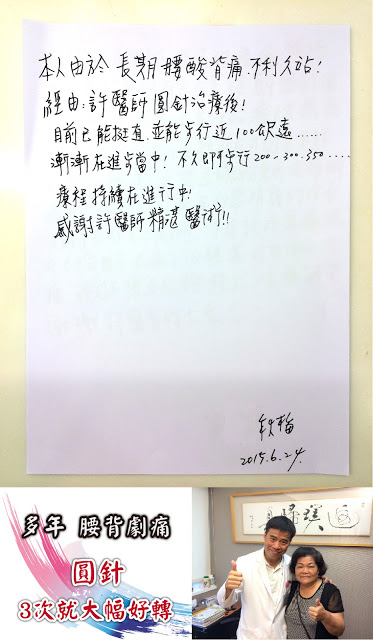 本人由於 長期腰酸背痛.不利久站!
經由:許醫師 圓針治療後!
目前已能挺直.並能步行近100公尺遠......
漸漸在進步當中! 不久即可步行200-300.350....
療程持續在進行中!
感謝許醫師精湛醫術!!
2015.6.24.
多年 腰背劇痛
圓針
3次就大幅好轉